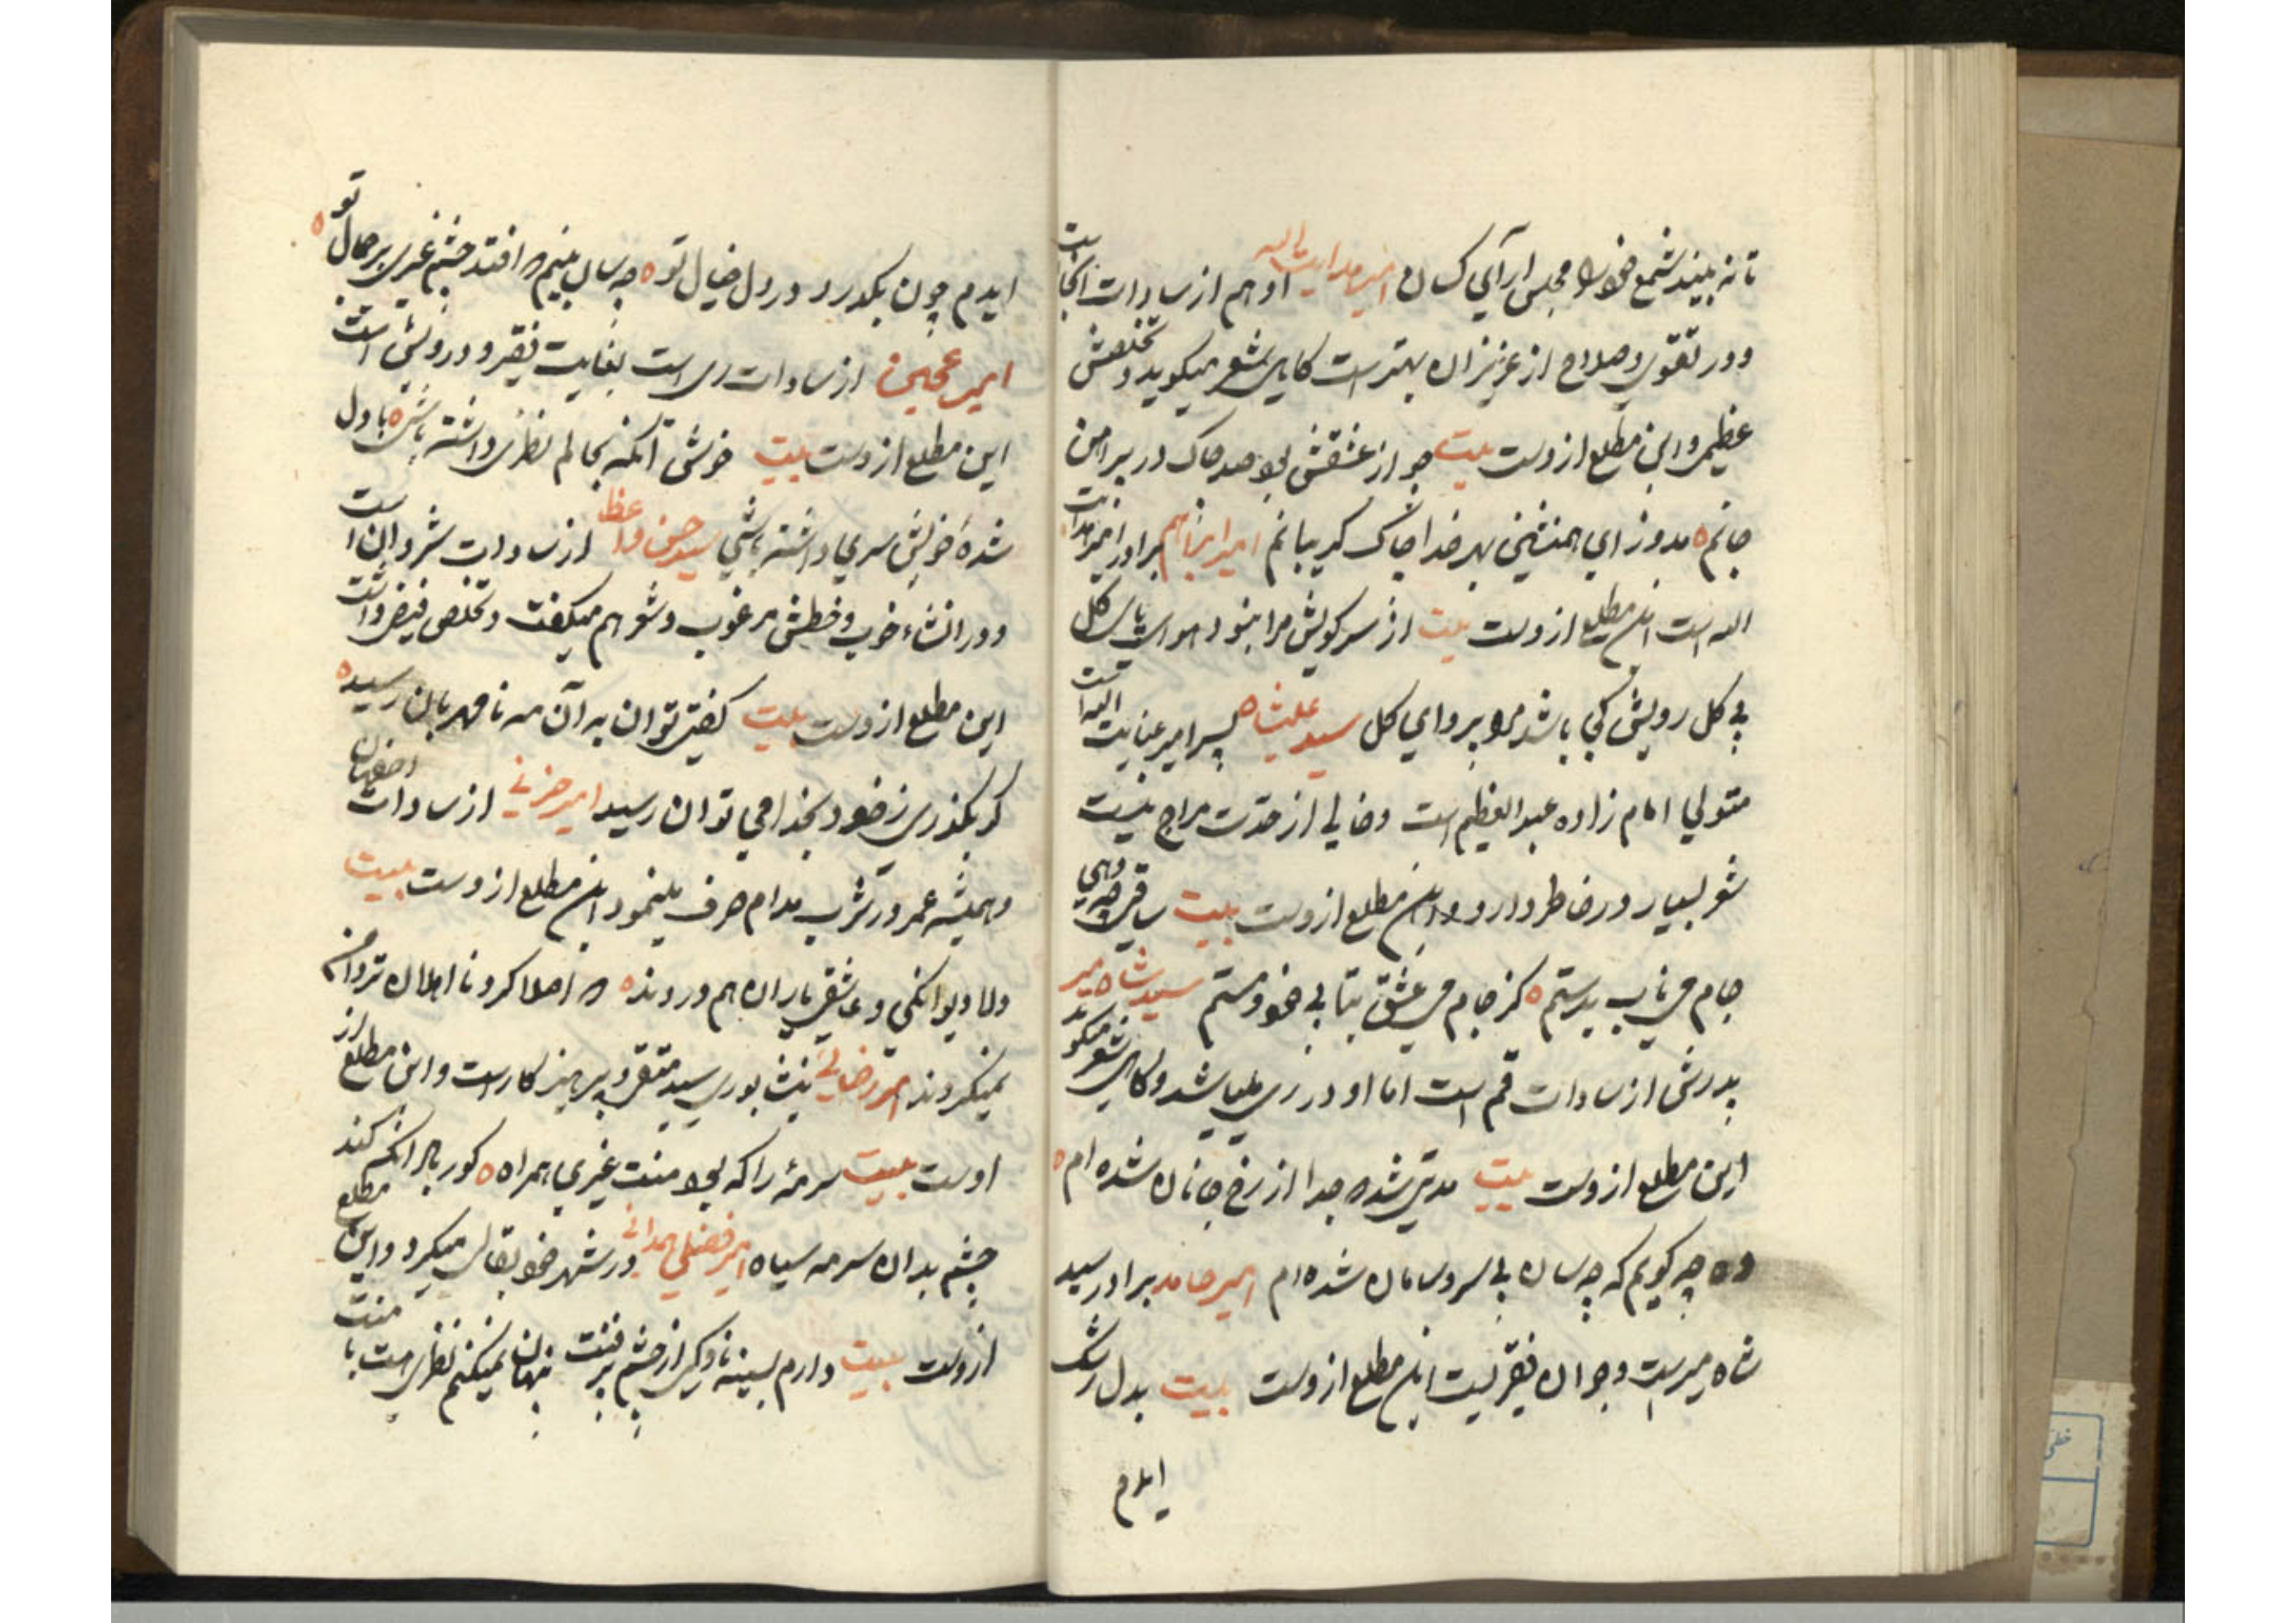 تا نه بیند شمع خود را مجلس ارای کسان امیر هدایت الله او هم از سادات آنجاست
و در تقوی و صلاح از عزیزان بهترست کاهی شعر میکوید و تخلصش
عظیمی و این مطلع از وست بیت چو از عشقش بود صد چاک در پیراهن
جانم مدوز ای همنشین بهر خدا چاک کریبانم امیر ابراهیم برادر امیر هدایت
الله است این مطلع از وست بیت از سر کویش مرا نبود هوای کل
بی کل رویش کی باشد مرا پروای کل سید علیشاه پسر امیر عنایت الله است
متولی امام زاده عبدالعظیم است و خالی از حدت مزاج نیست
شعر بسیار در خاطر دارد و این مطلع از وست بیت ساقی چه دهی
جام می ناب بدستم کز جام می عشق بتا بی خود و مستم سید شاه میر
پدرش از سادات قم است اما او در ری میباشد و کاهی شعر میکوید
این مطلع از وست بیت مدتی شد که جدا از رخ جانان شده ام
وه چه کویم که چه سان بی سر و سامان شده ام امیر حامد برادر سید
شاه میرست و جوان فقیریست این مطلع از وست بیت بدل رشک
ایدم
ایدم چون بکذرد در دل خیال تو چه سان بینم که افتد چشم غیری بر جمال تو
امیر از سادات ری است بغایت فقیر و درویش است
این مطلع از وست بیت خوش آنکه بحالم نظری داشته باشی با دل
شدهٔ خویش سری داشته باشی سید حسن واعظ از سادات شروان است
و در انشاء خوب و خطش مرغوب و شعر هم میکفت و تخلص فیض داشت
این مطلع از وست بیت کفتی توان به آن مه نامهربان رسید
کر بکذری ز خود بخدا می توان رسید امیر حزنی از سادات اصفهان
و همیشه عمر در شرب مدام صرف مینمود این مطلع از وست بیت
دلا دیوانکی و عاشقی یاران هم دردند که اصلا کرد نا اهلان تردامن
نمیکردند امیر رضائی نیشابوری سید متقی و پرهیز کارست و این مطلع از
اوست بیت سرمهٔ را که بود منت غیری همراه کور به انکه کند
چشم بدان سرمه سیاه امیر فضلی همدانی در شهر خود بقالی میکرد و این مطلع
از وست بیت دارم بسینه ناوکی از چشم پر فتنت پنهان نمیکنم نظری هست با منت
خطی